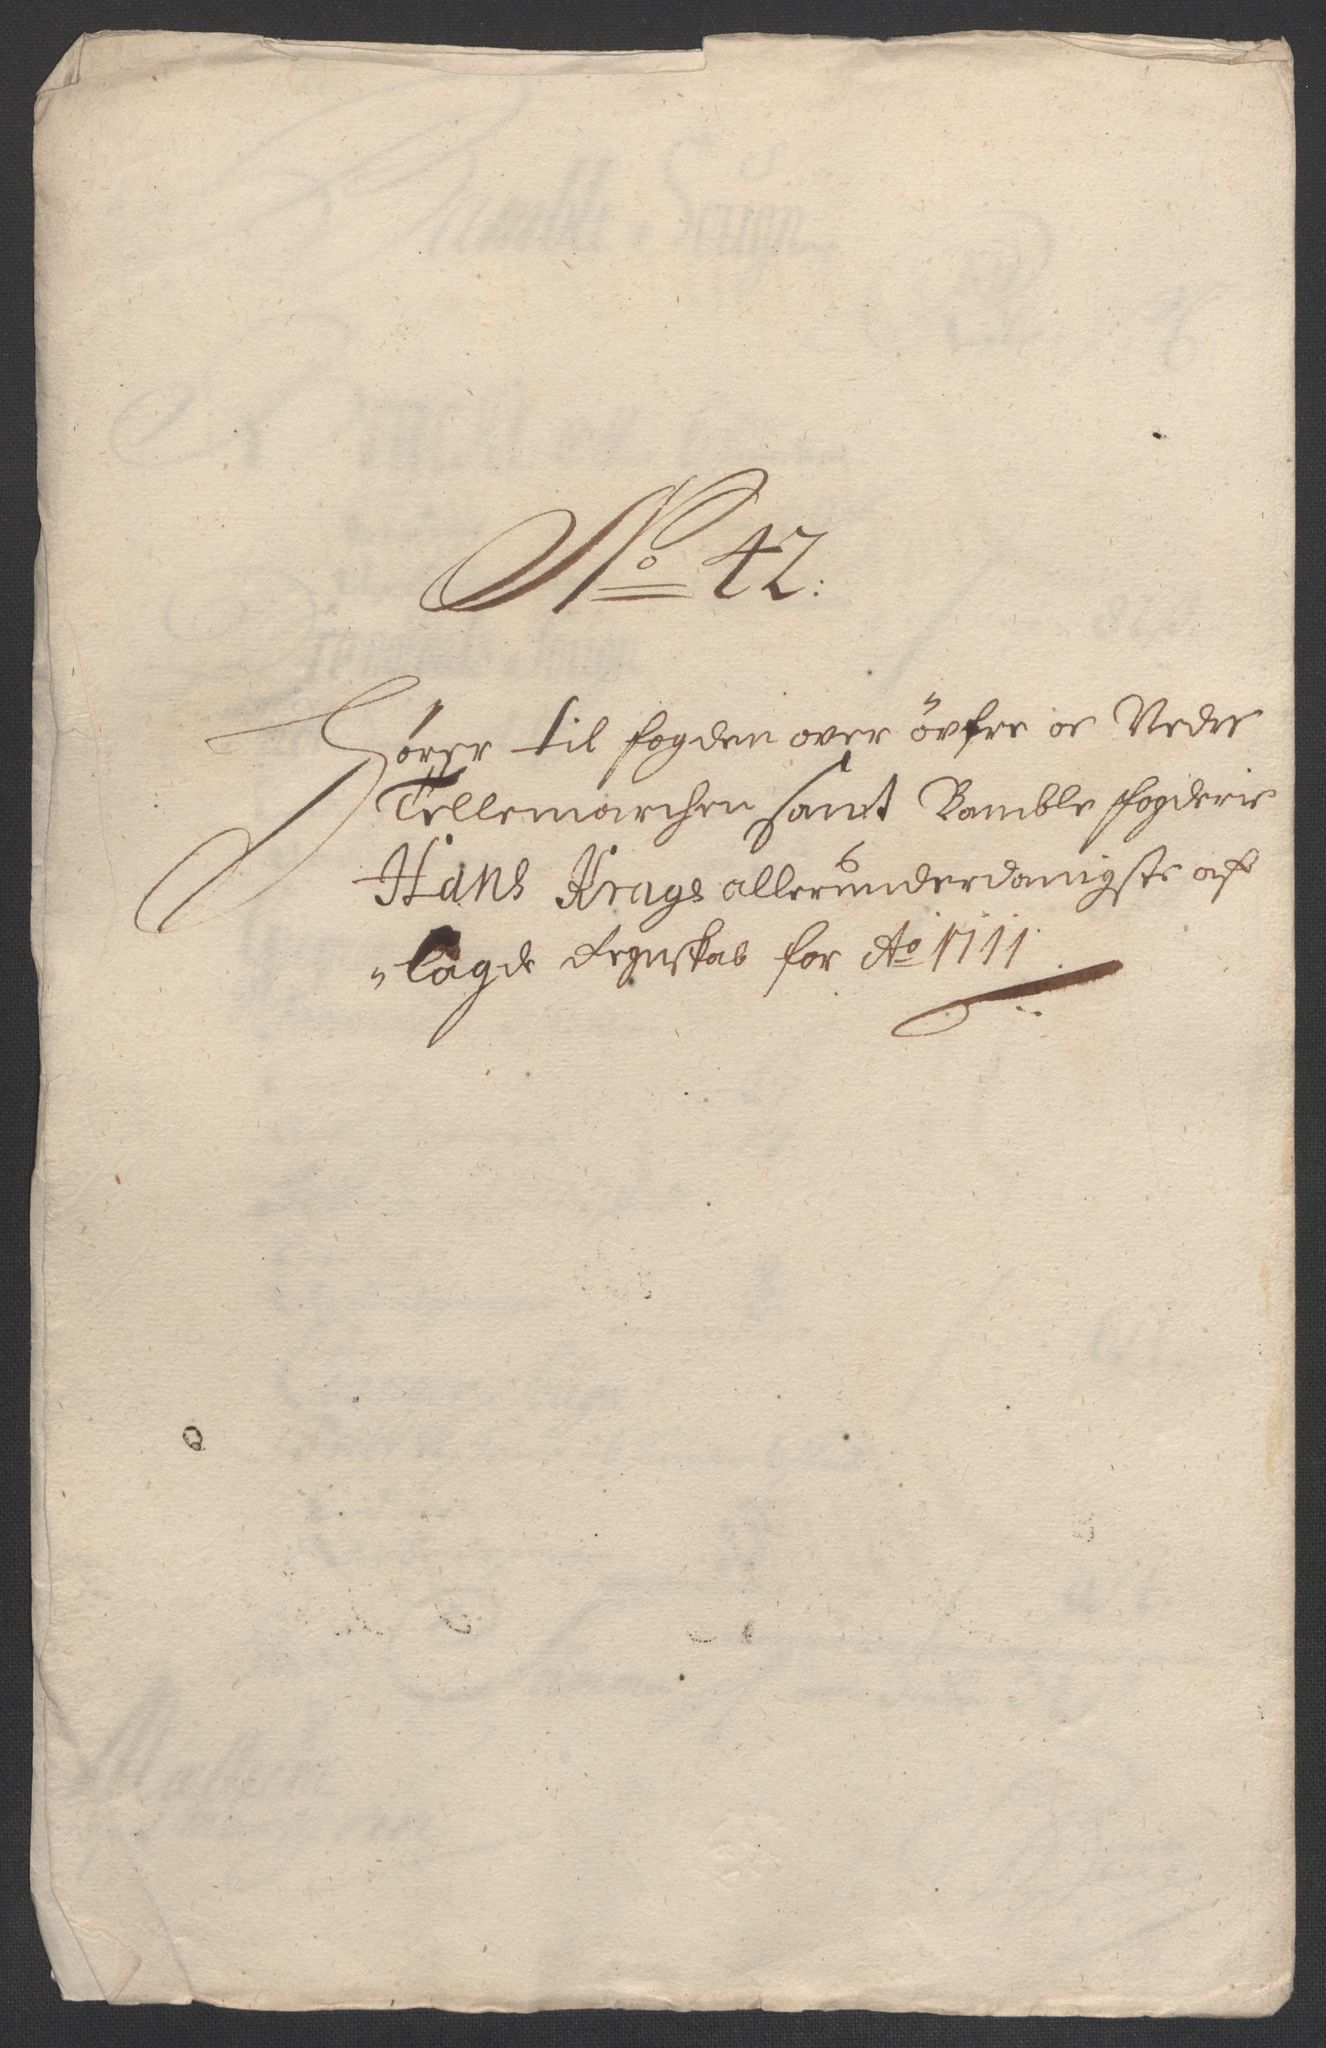 No 42:
Hører til fogden over øvfre oc Nedre
Tellemarchen samt Bamble fogderie
Hans Krags allerunderdanigste af
„lagde Regnskab for Ao 1711